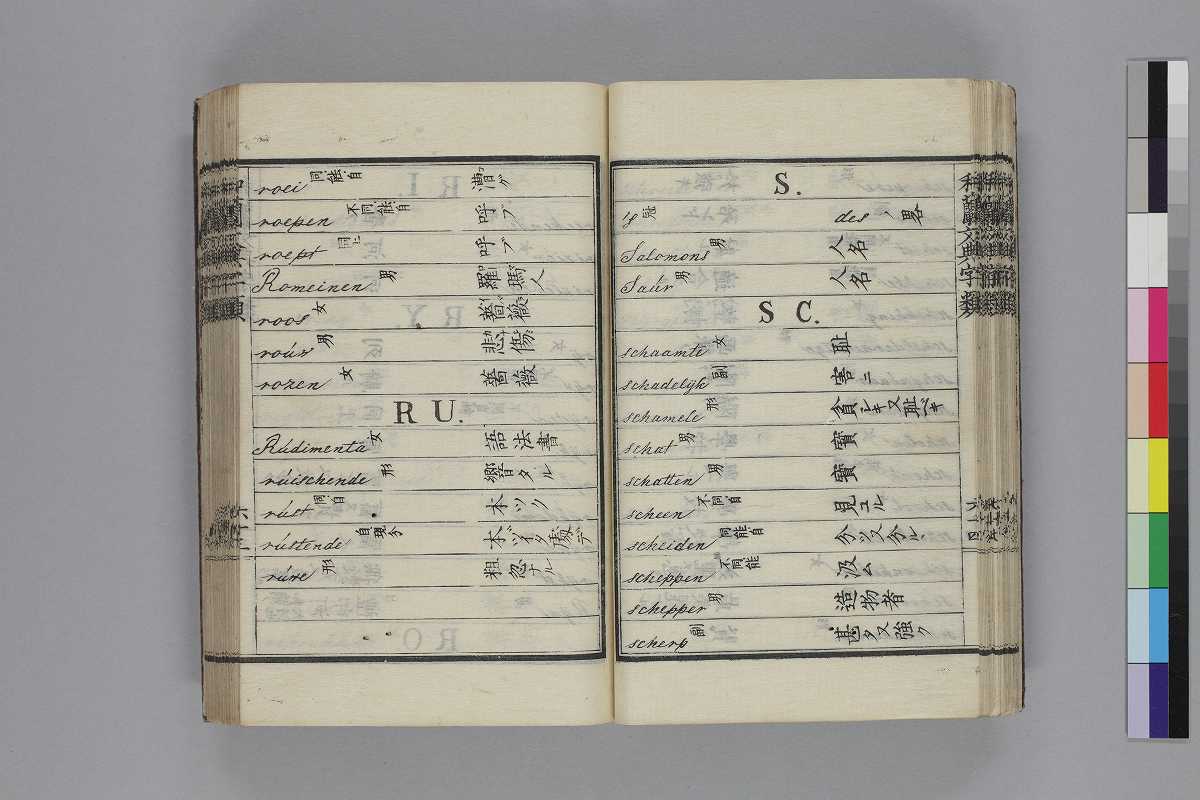 roei 同能自 漕グ
roepen 不同能自 呼ブ
roept 同上 呼ブ
Romeinen 男 羅瑪人
roos 女 薔薇
roúw 男 悲傷
rozen 女 薔薇
R U.
Rúdimenta 女 語法書
rúischende 形 響音タル
rúst 同自
rústende 自現分
rúwe 形 粗忽ナル
S.
's 冠 des ノ畧
Salomons 男 人名
Saúr 男 人名
S C.
schaamte 女 耻
schadelijk 副 害ニ
schamele 形
schat 男 寶
schatten 男 寶
scheen 不同自 見ユル
scheiden 同能自
scheppen 不同能 汲ム
schepper 男 造物者
scherp 副 甚タ又強ク
和蘭文典字類